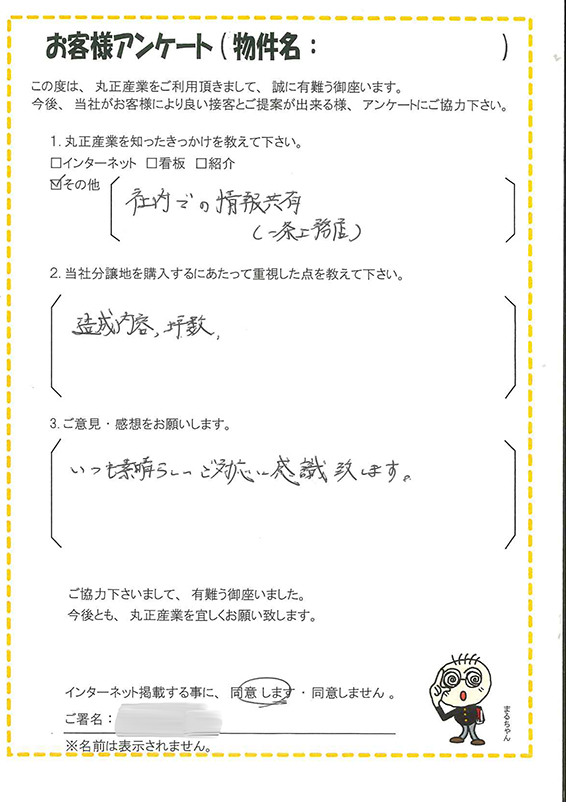 お客様アンケート(物件名： )
この度は、丸正産業をご利用頂きまして、誠に有難う御座います。
今後、当社がお客様により良い接客とご提案が出来る様、アンケートにご協力下さい。
1. 丸正産業を知ったきっかけを教えて下さい。
□インターネット □看板 □紹介
☑その他
社内での情報共有
(一条工務店)
2. 当社分譲地を購入するにあたって重視した点を教えて下さい。
造成内容, 坪数,
3. ご意見・感想をお願いします。
いつも素晴らしいご対応に感識致します。
ご協力下さいまして、有難う御座いました。
今後とも、丸正産業を宜しくお願い致します。
インターネット掲載する事に、同意します・同意しません。
ご署名：
※名前は表示されません。
まるちゃん